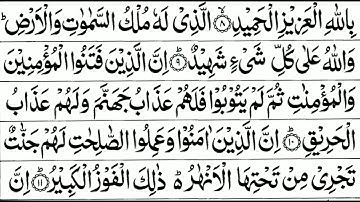 بِاللّٰهِ الْعَزِيْزِ الْحَمِيْدِ ۙ۝۸ الَّذِيْ لَهٗ مُلْكُ السَّمٰوٰتِ وَالْاَرْضِ ؕ
وَاللّٰهُ عَلٰى كُلِّ شَيْءٍ شَهِيْدٌ ؕ۝۹ اِنَّ الَّذِيْنَ فَتَنُوا الْمُؤْمِنِيْنَ
وَالْمُؤْمِنٰتِ ثُمَّ لَمْ يَتُوْبُوْا فَلَهُمْ عَذَابُ جَهَنَّمَ وَلَهُمْ عَذَابُ
الْحَرِيْقِ ؕ۝۱۰ اِنَّ الَّذِيْنَ اٰمَنُوْا وَعَمِلُوا الصّٰلِحٰتِ لَهُمْ جَنّٰتٌ
تَجْرِيْ مِنْ تَحْتِهَا الْاَنْهٰرُ ؕ۬ ذٰلِكَ الْفَوْزُ الْكَبِيْرُ ؕ۝۱۱ اِنَّ